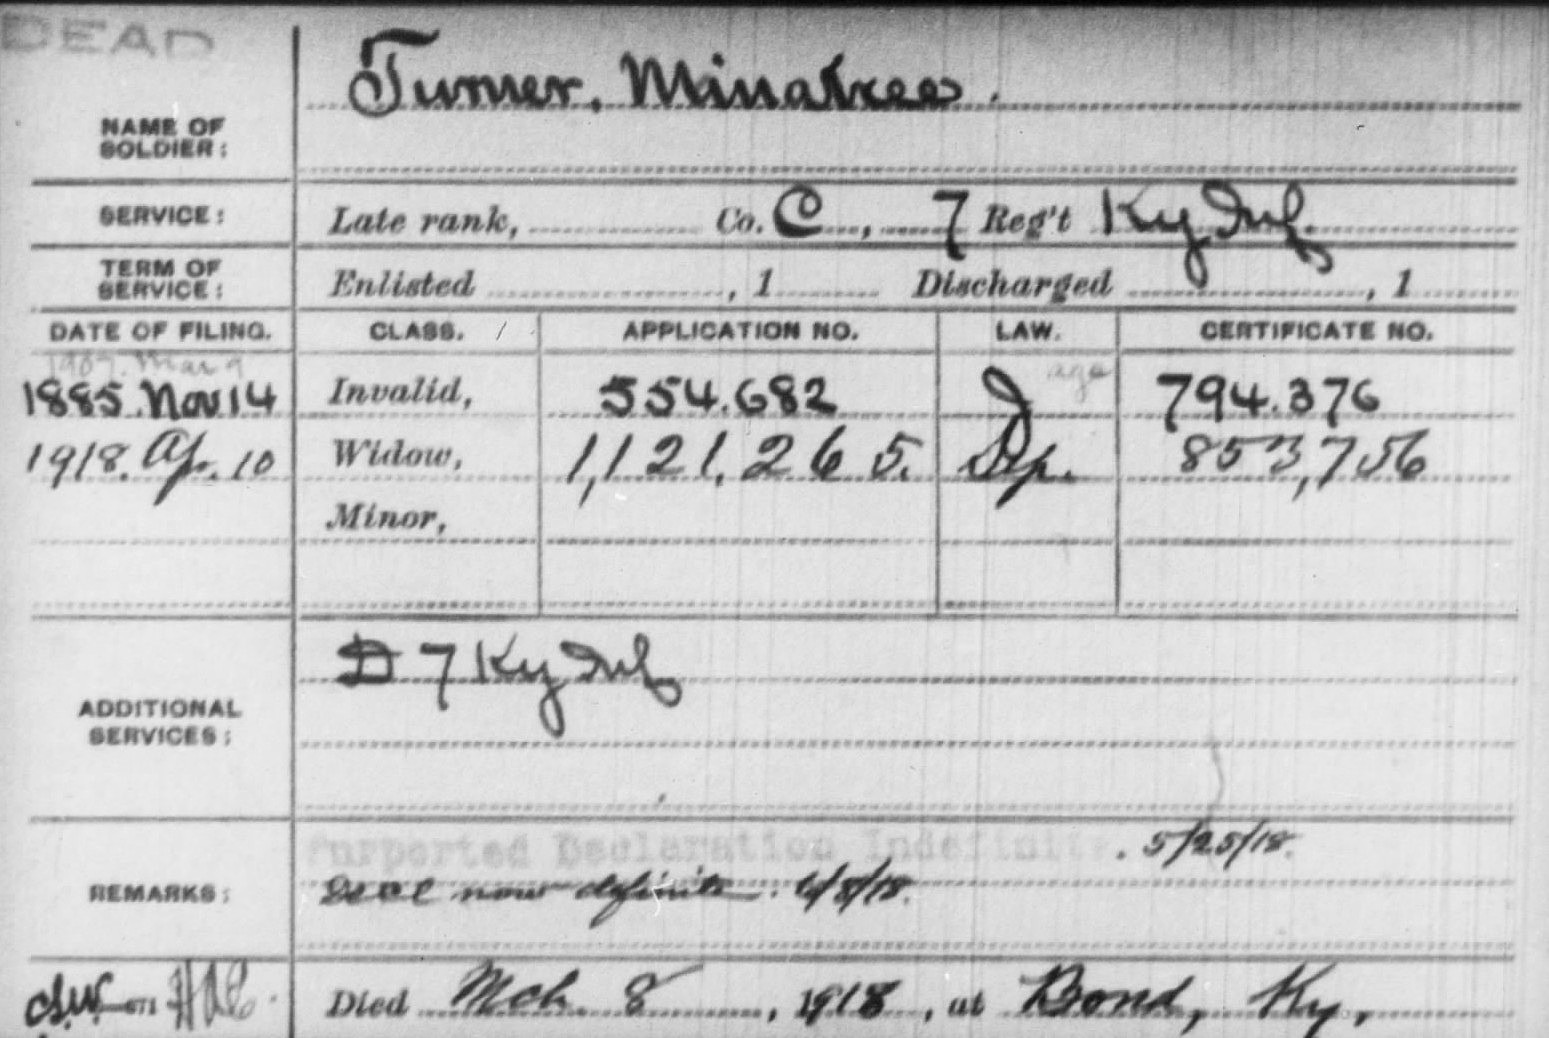 DEAD
NAME OF SOLDIER: Turner, Minatree.
SERVICE: Late rank, Co. C, 7 Reg't Ky Inf.
TERM OF SERVICE: Enlisted , 1 Discharged , 1
DATE OF FILING. CLASS. APPLICATION NO. LAW. CERTIFICATE NO.
1907. Mar 9 age
1885. Nov 14 Invalid, 554.682 J 794.376
1918. Ap. 10 Widow, 1,121,265. Dp. 853,756
Minor,
ADDITIONAL SERVICES: D 7 Ky Inf
REMARKS: Purported Declaration Indefinite. 5/25/18.
Decl now definite. 6/8/18.
Died Mch. 8, 1918, at Bond, Ky,